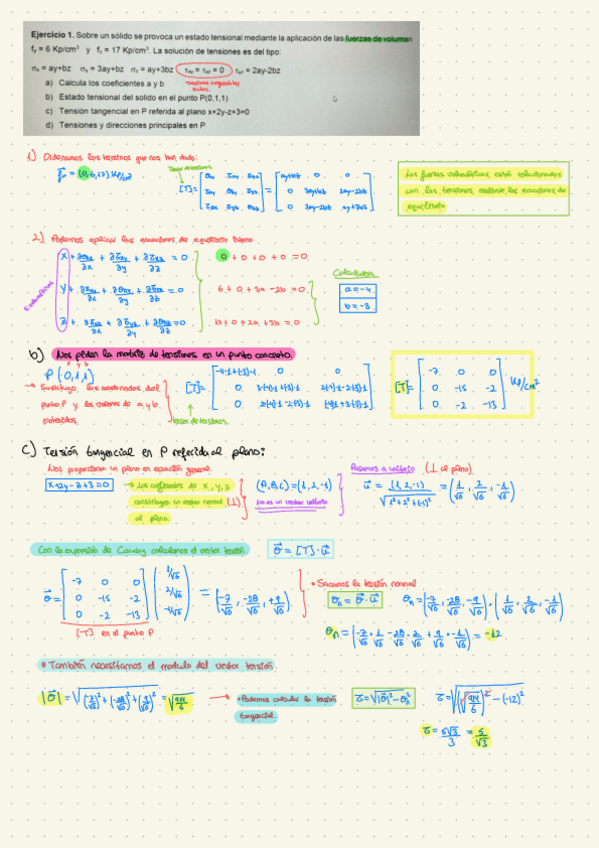 Ejercicio 1. Sobre un sólido se provoca un estado tensional mediante la aplicación de las fuerzas de volumen
fᵧ = 6 Kp/cm³ y f_z = 17 Kp/cm³. La solución de tensiones es del tipo:
σₓ = ay+bz σᵧ = 3ay+bz σ_z = ay+3bz τxy = τxz = 0 τyz = 2ay-2bz
Tensiones tangenciales nulas.
a) Calcula los coeficientes a y b
b) Estado tensional del solido en el punto P(0,1,1)
c) Tensión tangencial en P referida al plano x+2y-z+3=0
d) Tensiones y direcciones principales en P
1) Ordenamos los terminos que nos han dado:
[T]=
Las fuerzas volumétricas están relacionadas
con las tensiones mediante las ecuaciones de
equilibrio
2) Podemos aplicar las ecuaciones de equilibrio interno
0 + 0 + 0 + 0 = 0.
6 + 0 + 3a - 2b = 0
17 + 0 + 2a + 3b = 0
Calculadora
a = -4
b = -3
b) Nos piden la matriz de tensiones en un punto concreto.
P (0,1,1)
→ Sustituyo las coordenadas del
punto P y los valores de a y b
obtenidos
[T]=
tensor de tensiones
[T]= -7 0 0
0 -15 -2
0 -2 -13
Kp/cm²
c) Tensión tangencial en P referida al plano:
Nos proporcionan un plano en ecuación general.
x+2y-z+3=0
→ Los coeficientes de x, y, z
constituyen un vector normal (⊥)
al plano.
(A,B,C) = (1,2,-1)
No es un vector unitario
Pasamos a unitario (⊥ al plano)
u = (1,2,-1) / √(1²+2²+(-1)²) = (1/√6, 2/√6, -1/√6)
Con la expresión de Cauchy calculamos el vector tensión
σ = [T]·u
σ = -7 0 0 1/√6
0 -15 -2 2/√6
0 -2 -13 -1/√6
= (-7/√6, -28/√6, +9/√6)
[T] en el punto P
• Sacamos la tensión normal
σn = σ·u
σn = -12
• También necesitamos el modulo del vector tensión
|σ| = √((-7/√6)²+(-28/√6)²+(9/√6)²)
→ • Podemos calcular la tensión
tangencial.
τ = √(|σ|² - σn²)
τ = 5√3/3 = 5/√3